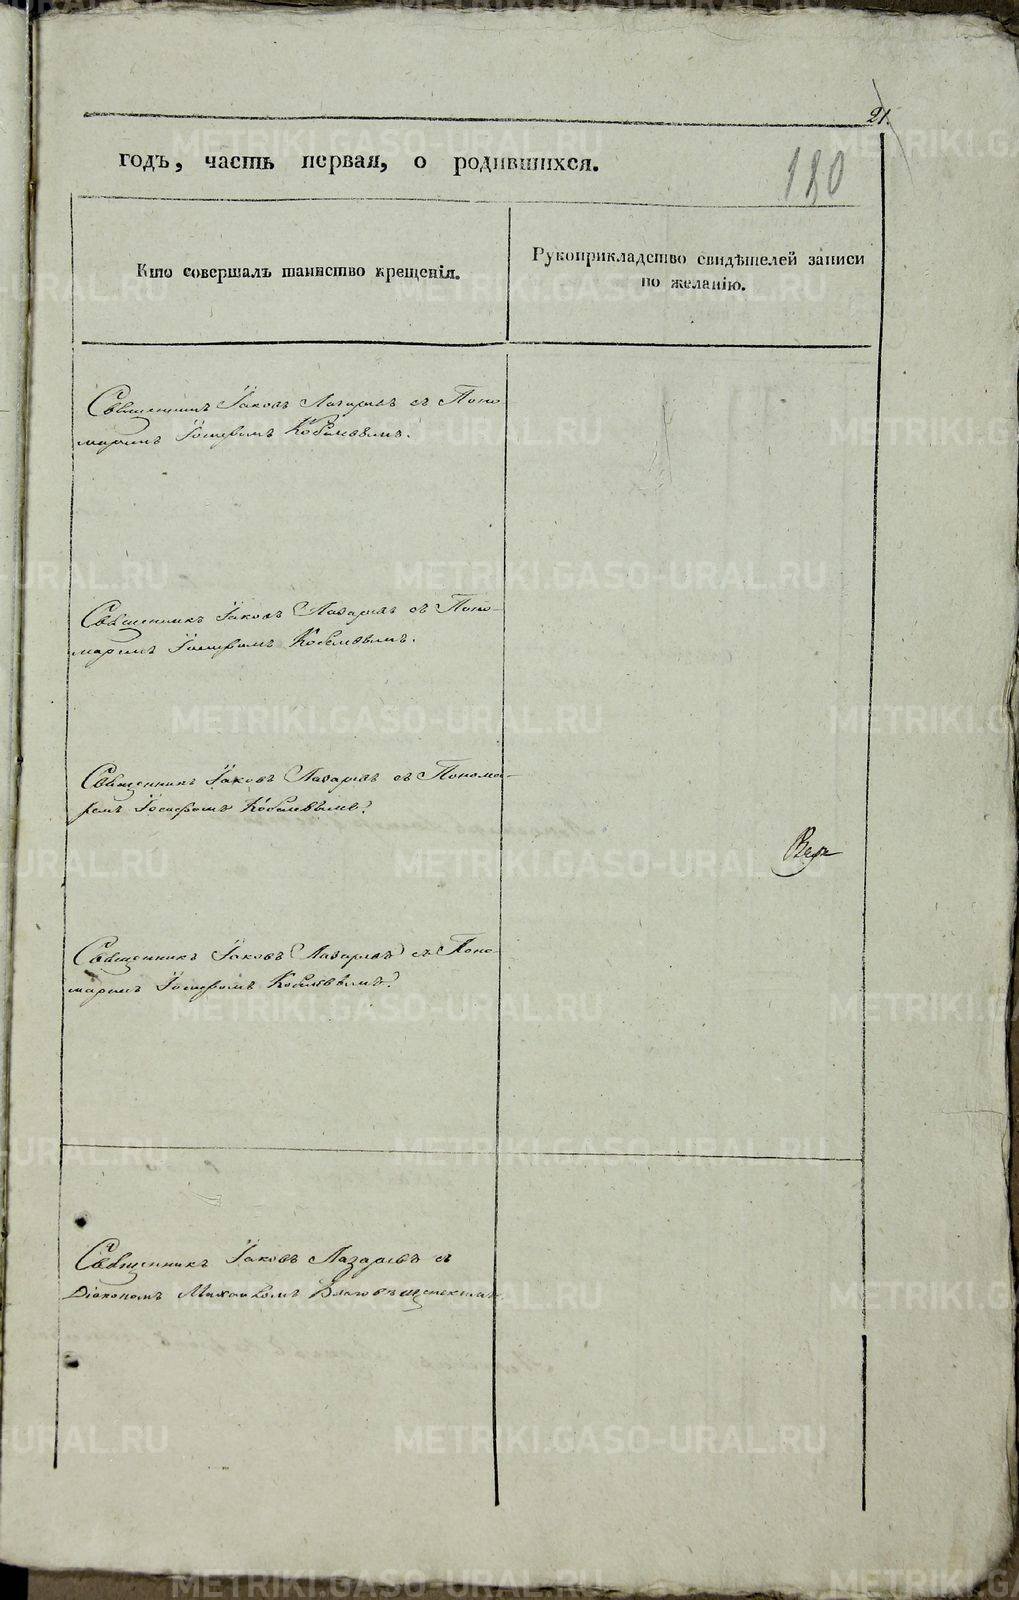 21.
годъ, часть первая, о родившихся.
180
Кто совершалъ таинство крещенія.
Рукоприкладство свидѣтелей записи
по желанію.
Священникъ Іаковъ Лазаревъ съ Поно
маремъ Іосифомъ Кобылевымъ.
Священникъ Іаковъ Лазаревъ съ Поно-
маремъ Іосифомъ Кобылевымъ.
Священникъ Іаковъ Лазаревъ съ Понома-
ремъ Іосифомъ Кобылевымъ.
Священникъ Іаковъ Лазаревъ съ Поно
маремъ Іосифомъ Кобылевымъ.
Священникъ Іаковъ Лазаревъ съ
Діакономъ Михаиломъ Благовѣщенскимъ
METRIKI.GASO-URAL.RU